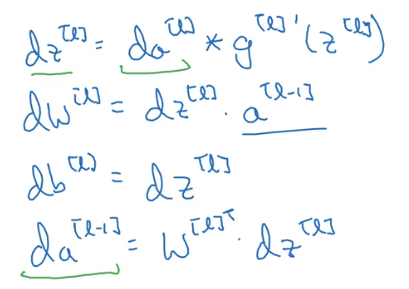 dz^[l] = da^[l] * g^[l]'(z^[l])
dW^[l] = dz^[l] · a^[l-1]
db^[l] = dz^[l]
da^[l-1] = W^[l]^T · dz^[l]